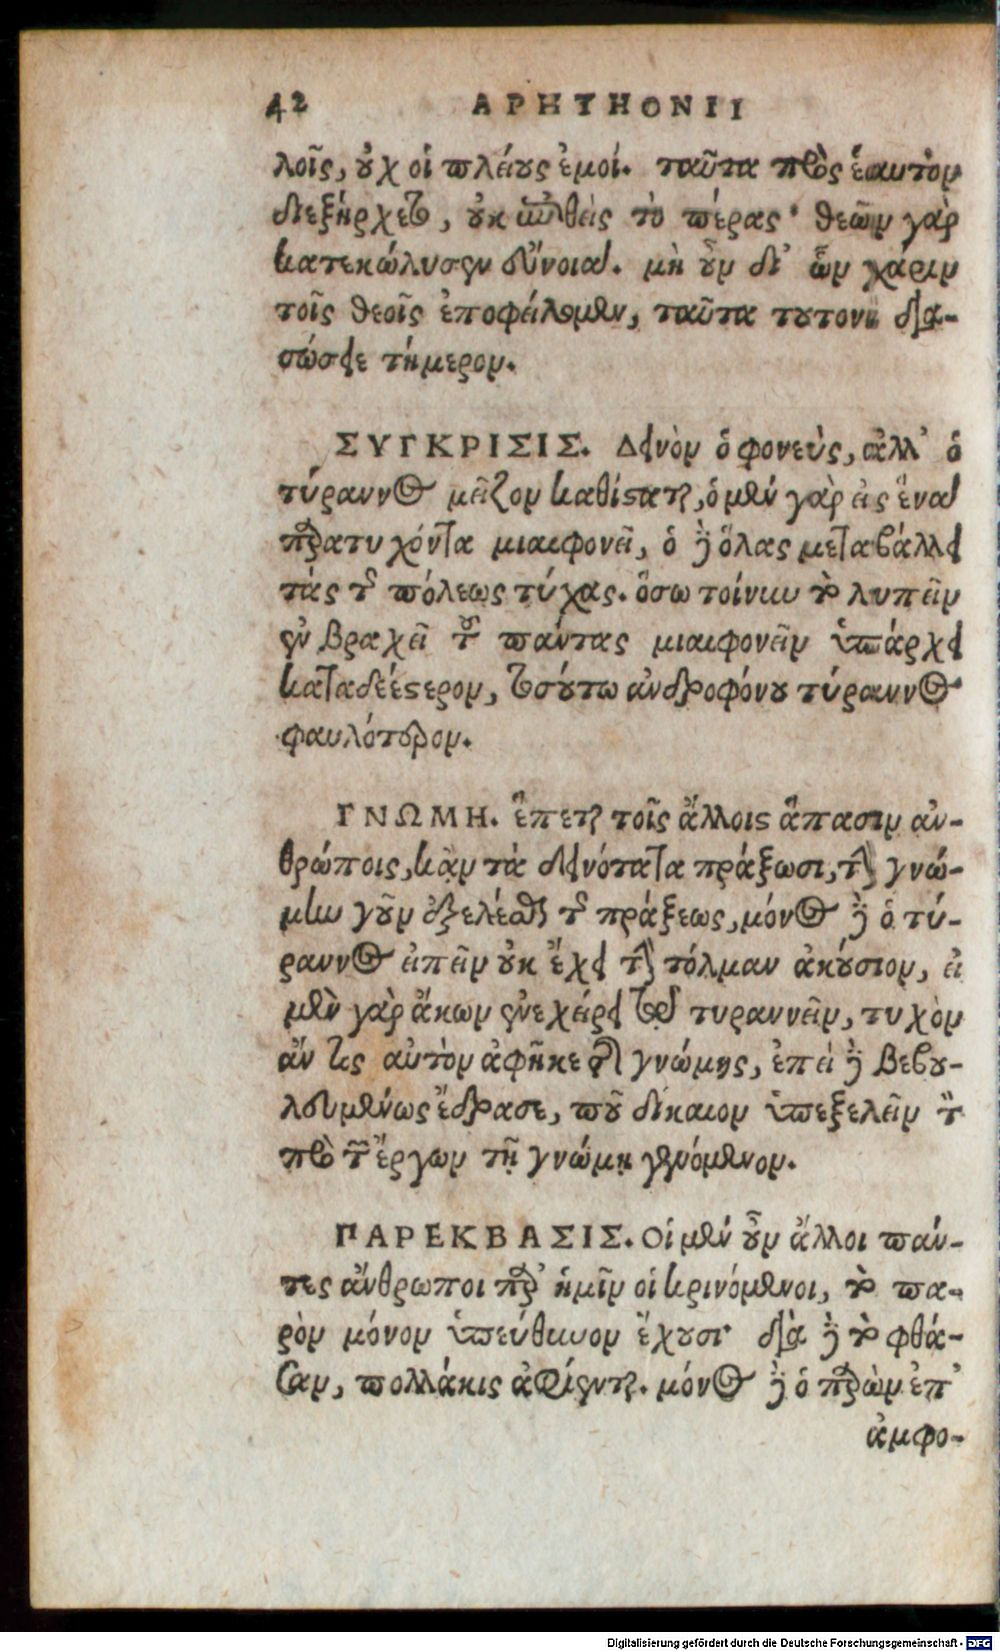 42 ΑΡΗΤΗΟΝΙΙ
λοῖς, οὐχ οἱ πλείους ἐμοί. ταῦτα πρὸς ἑαυτὸν
διεξήρχετο, οὐκ εἰς τὸ πέρας· θεῶν γὰρ
κατεκώλυσεν εὔνοια. μὴ οὖν δι᾽ ὧν χάριν
τοῖς θεοῖς ἐποφείλομεν, ταῦτα τουτονὶ δια-
σώσειε τήμερον.
ΣΥΓΚΡΙΣΙΣ. Δεινὸν ὁ φονεὺς, ἀλλ᾽ ὁ
τύραννος μεῖζον καθίσταται, ὁ μὲν γὰρ εἰς ἕνα
παρατυχόντα μιαιφονεῖ, ὁ δὲ ὅλας μεταβάλλει
τὰς τῆς πόλεως τύχας. ὅσω τοίνυν τὸ λυπεῖν
ἐν βραχεῖ τοῦ πάντας μιαιφονεῖν ὑπάρχει
καταδεέστερον, τοσούτω ἀνδροφόνου τύραννος
φαυλότερον.
ΓΝΩΜΗ. ἕπεται τοῖς ἄλλοις ἅπασιν ἀν-
θρώποις, κἂν τὰ δεινότατα πράξωσι, τὴν γνώ-
μην γοῦν ἐξελέσθαι τῆς πράξεως, μόνος δὲ ὁ τύ-
ραννος εἰπεῖν οὐκ ἔχει τὴν τόλμαν ἀκούσιον, εἰ
μὲν γὰρ ἄκων ἐνεχείρει τῷ τυραννεῖν, τυχὸν
ἄν τις αὐτὸν ἀφῆκε τῆς γνώμης, ἐπεὶ δὲ βεβου-
λευμένως ἔδρασε, ποῦ δίκαιον ὑπεξελεῖν τὸν
πρὸ τῶν ἔργων τῇ γνώμῃ γενόμενον.
ΠΑΡΕΚΒΑΣΙΣ. Οἱ μὲν οὖν ἄλλοι πάν-
τες ἄνθρωποι παρ᾽ ἡμῖν οἱ κρινόμενοι, τὸ πα-
ρὸν μόνον ὑπεύθυνον ἔχουσι· διὰ δὲ τὸ φθά-
σαν, πολλάκις ἀφίενται. μόνος δὲ ὁ παρὼν ἐπ᾽
ἀμφο-
Digitalisierung gefördert durch die Deutsche Forschungsgemeinschaft - DFG